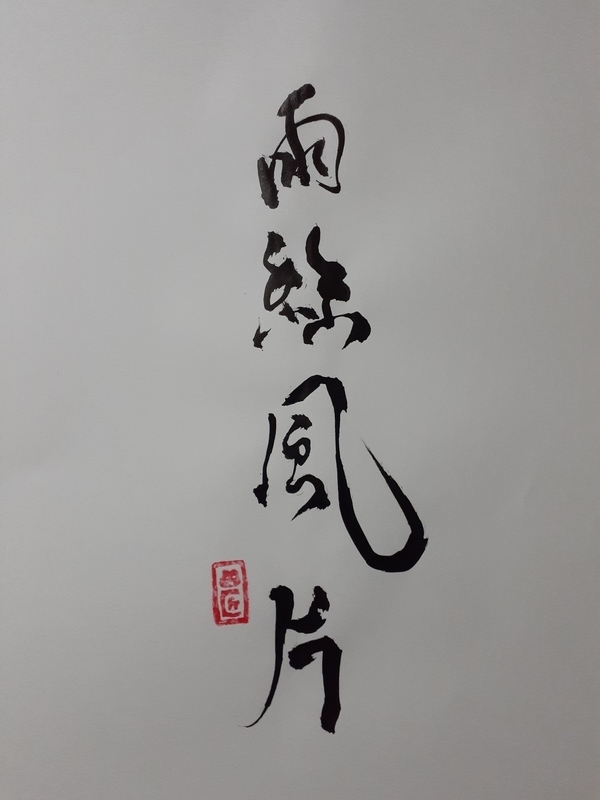 雨絲風片